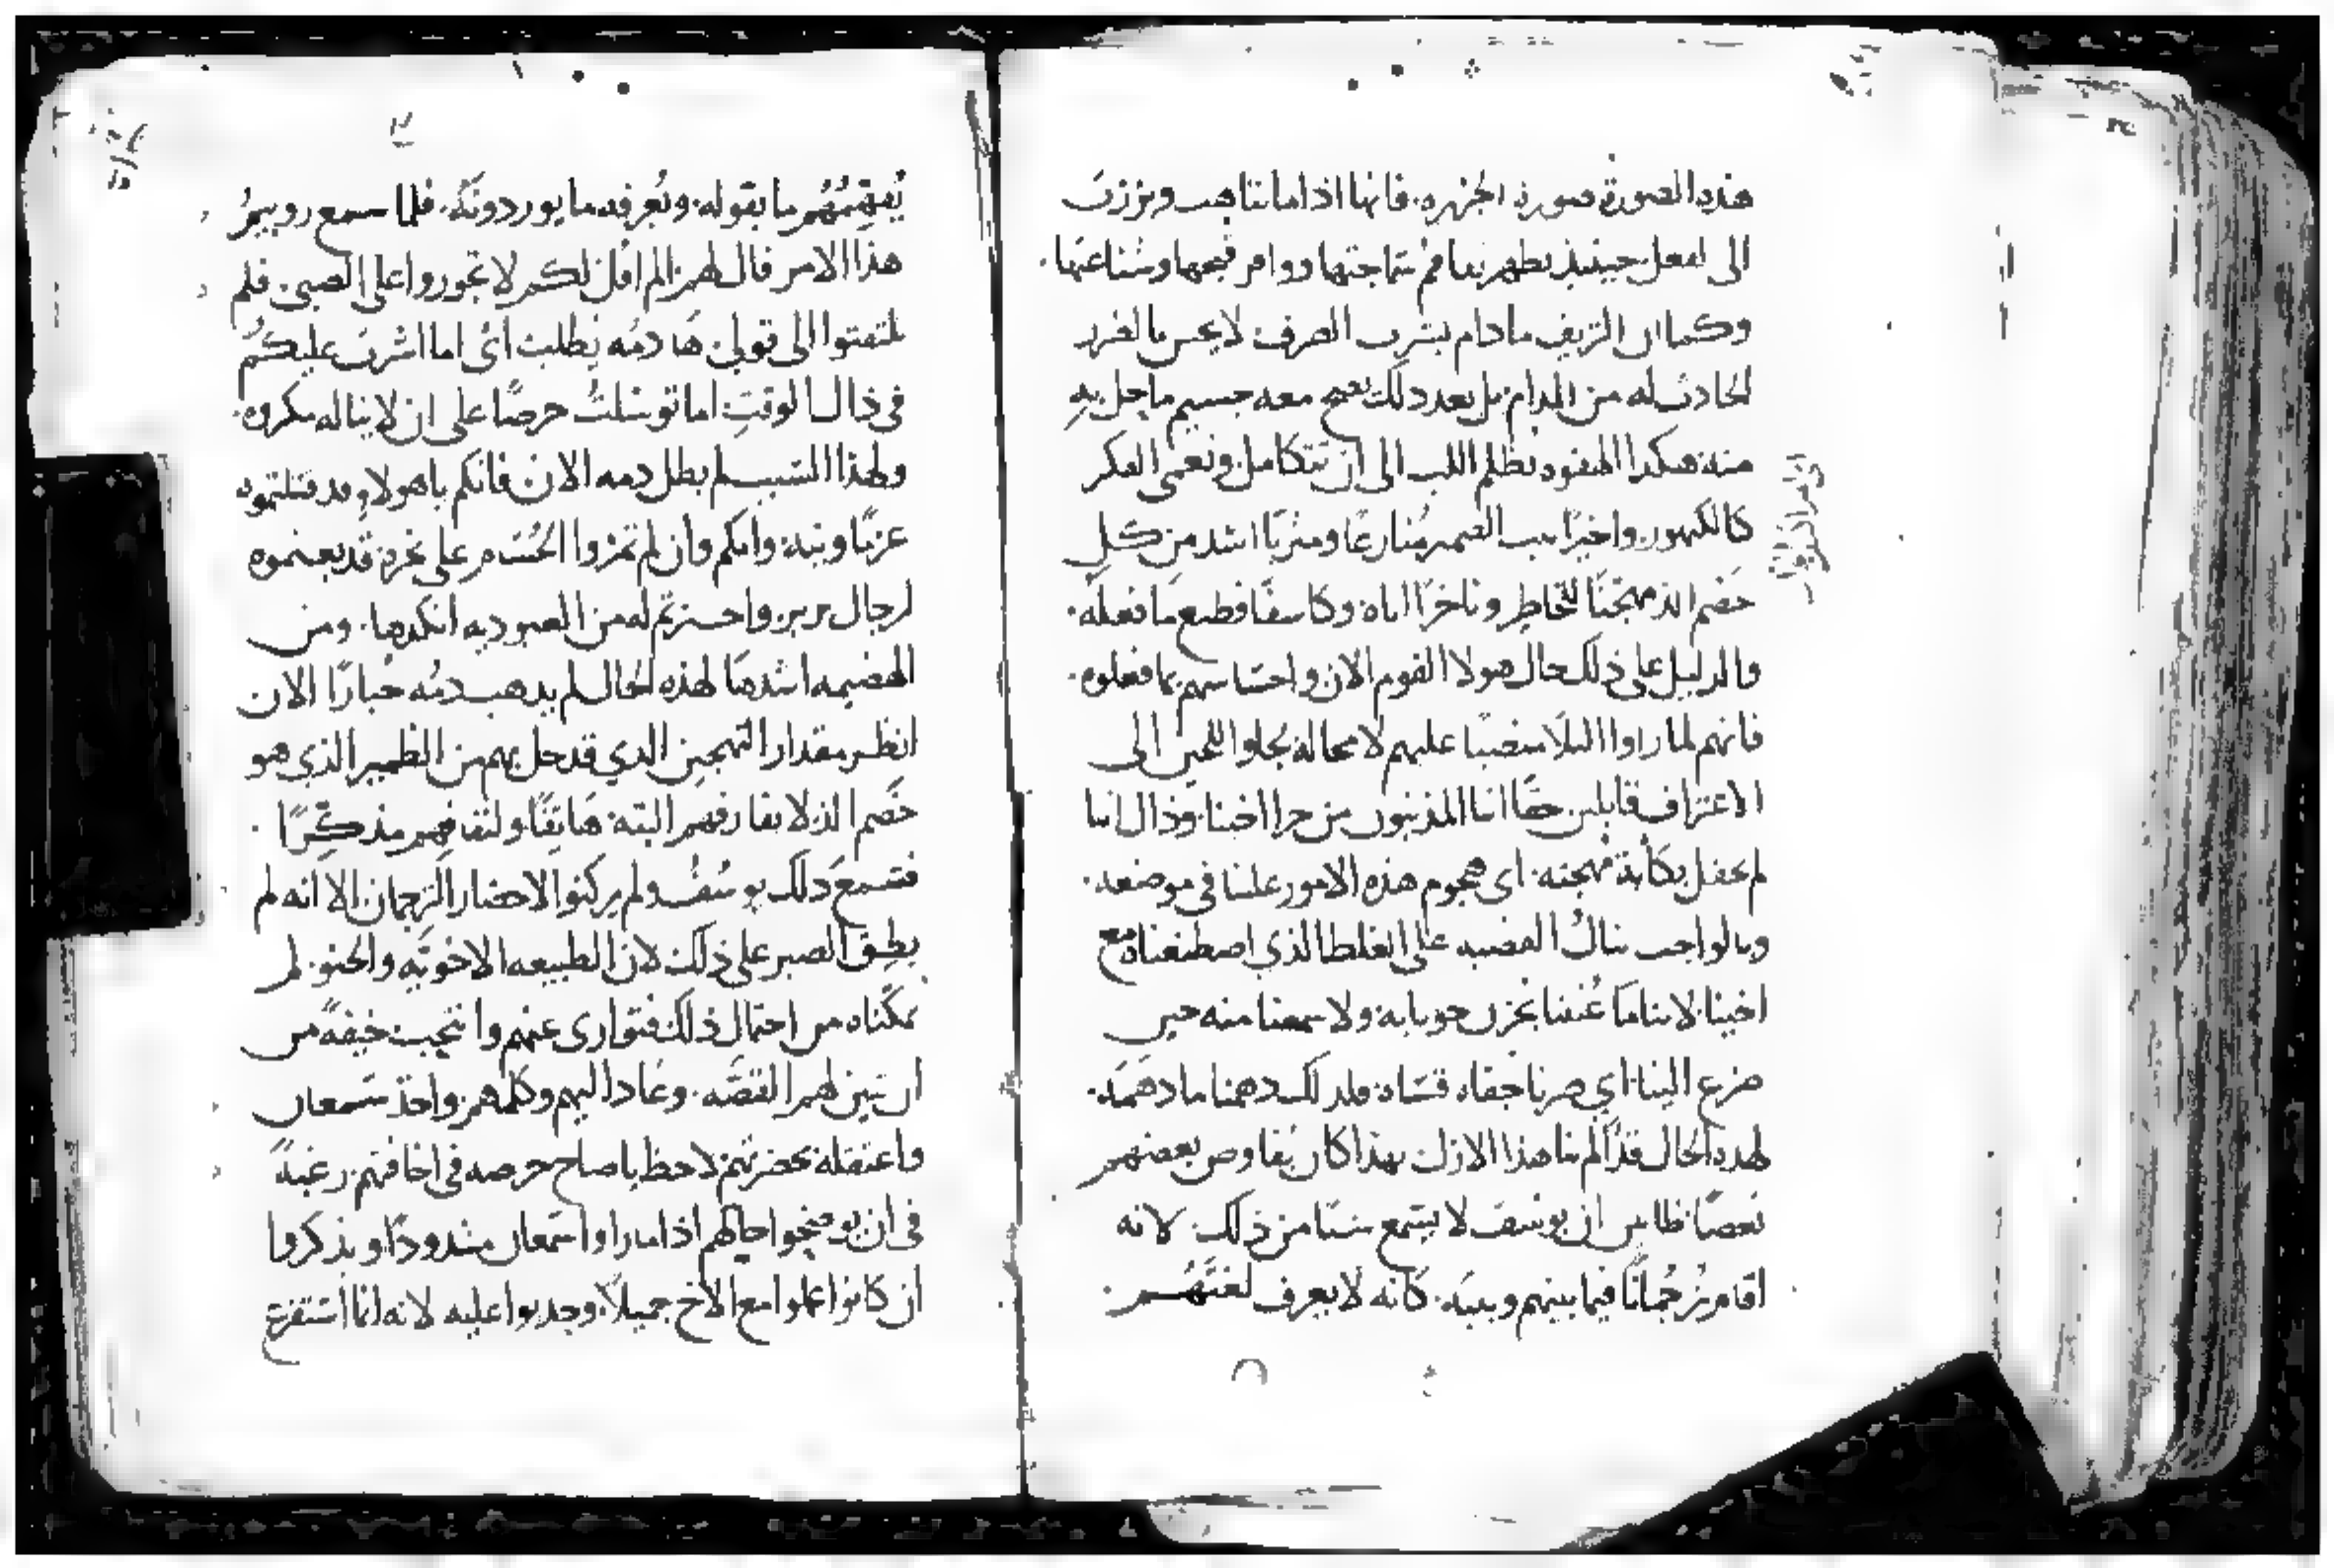 هذه الصورة صورة الجزيره. فانها اذا ما تناهت وبرزت
الى الفعل حينيذ يظهر تفاقم سماجتها ووافر قبحها وشناعتها.
وكما ان النزيف مادام يشرب الصرف لا يحس بالضرر
الحادث له من المدام بل بعد ذلك معه جسيم ما حل به
منه هكذا الهفوه تظلم اللب الى ان تتكامل وتعمى الفكر
واخيرًا الضمير اشد من كل
خصم للخاطر اياه وكاسفًا فظيع ما فعله.
والدليل على ذلك حال هولا القوم الان واحساسهم بما فعلوه.
فانهم لما راوا البلا عليهم لا محاله الى
الاعتراف قايلين حقًا اننا المذنبون من جرا اخينا وذاك اننا
لم نحفل بكأبة مهجته. اى هجوم هذه الامور علينا في موضعه.
وبالواجب على الغلط الذي اصطنعناه مع
اخينا لاننا ما بحزن ولا سمعنا منه حين
ضرع الينا اي صرنا جفاه قساه فلذلك دهمنا ما دهمه.
لهذه الحال هذا بهذا كان يفاوض بعضهم
بعضًا ظانين ان يوسف لا يسمع شيًا من ذلك لانه
اقام ترجمانًا فيما بينهم وبينه. كانه لا يعرف لغتهم
يفهمهم ما يقوله ويعرفه ما يوردونه. فلما سمع روبيم
هذا الامر قال لهم الم اقل لكم لا تجوروا على الصبي. فلم
تلتفتوا الى قولي ها دمه يطلب اى اما اشرت عليكم
في ذاك الوقت اما توسلت حرصًا على ان لا يناله مكروه.
ولهذا السبب لم يطل دمه الان فانكم يا هولاء قد قتلتموه
عزمًا ونيه وانكم وان لم تمروا الحسام على نحره قد بعتموه
لرجال بربر واحسنتم له من العبوديه انكدها. ومن
الهضيمه اشدها لهذه الحال لم يذهب دمه جبارًا الان
انظر مقدار التهجين الذي قد حل بهم من الضمير الذي هو
خصم الذ لا يفارقهم البته هاتفًا ولنفاقهم مذكرًا
فسمع ذلك يوسف ولم يركنوا لاحضار الترجمان الا انه لم
يطق الصبر على ذلك لان الطبيعه الاخويه والحنو. لم
يمكناه من احتمال ذلك فتوارى عنهم وانتحب خيفةً من
ان تبين لهم القصه. وعاد اليهم وكلمهم واخذ شمعان
واعتقله بحضرتهم لاحظ يا صاح حرصه في اخافتهم رغبةً
في ان يوضحوا حالهم اذا ما راوا شمعان مشدودًا ويذكروا
ان كانوا عملوا مع الاخ جميلاً. وحدبوا عليه لانه انما استفزع